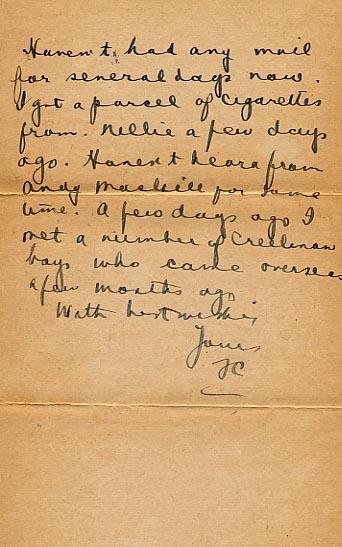 Haven't had any mail
for several days now.
I got a parcel of cigarettes
from. Nellie a few days
ago. Haven't heard from
Andy Maskill for some
time. A few days ago I
met a number of Creelman
boys who came overseas
a few months ago
With best wishes
Yours
JC